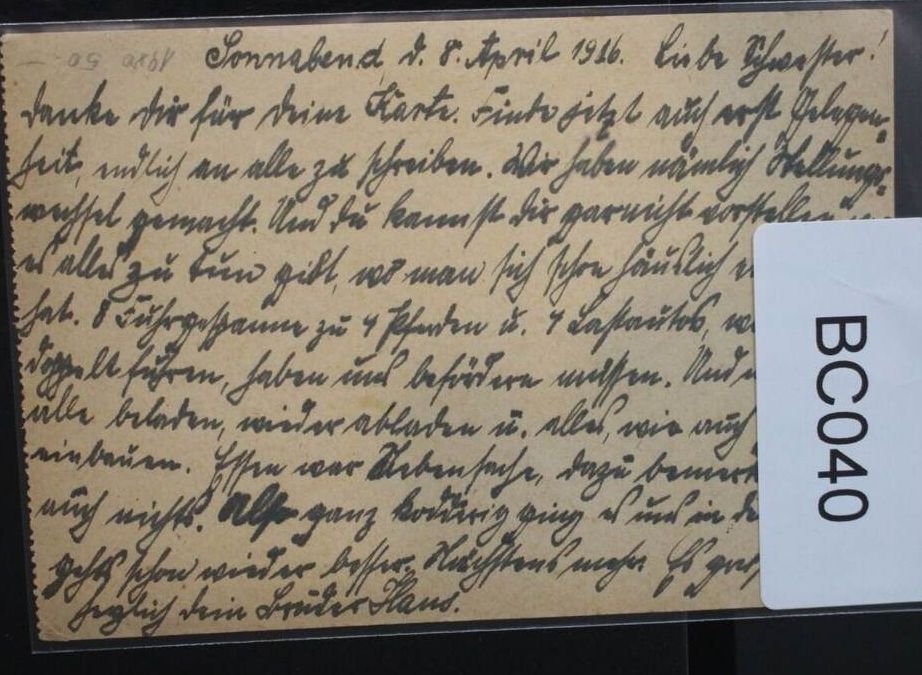 Sonnabend, d. 8. April 1916. Liebe Schwester!
Danke Dir für Deine Karte. Finde jetzt auch erst Gelegen-
heit, endlich an alle zu schreiben. Wir haben nämlich Stellungs-
wechsel gemacht. Und Du kannst Dir garnicht vorstellen
es alles zu tun gibt, wo man sich schon häuslich
hat. 8 Fuhrgespanne zu 4 Pferden u. 4 Lastautos,
doppelt fuhren, haben uns befördern müssen. Und
alle beladen, wieder abladen u. alles, wie auch
einbauen. Essen war Nebensache, dazu
auch nichts. Also ganz kodderig ging es uns in
gehts schon wieder besser. Nächstens mehr. Es
herzlich Dein Bruder Hans.
BC040